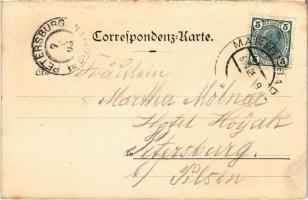 Correspondenz-Karte.
PETERSBURG
5 5
Fräulein
Martha Molnár
Hotel Hojak
Petersburg.
b/ Pilsen